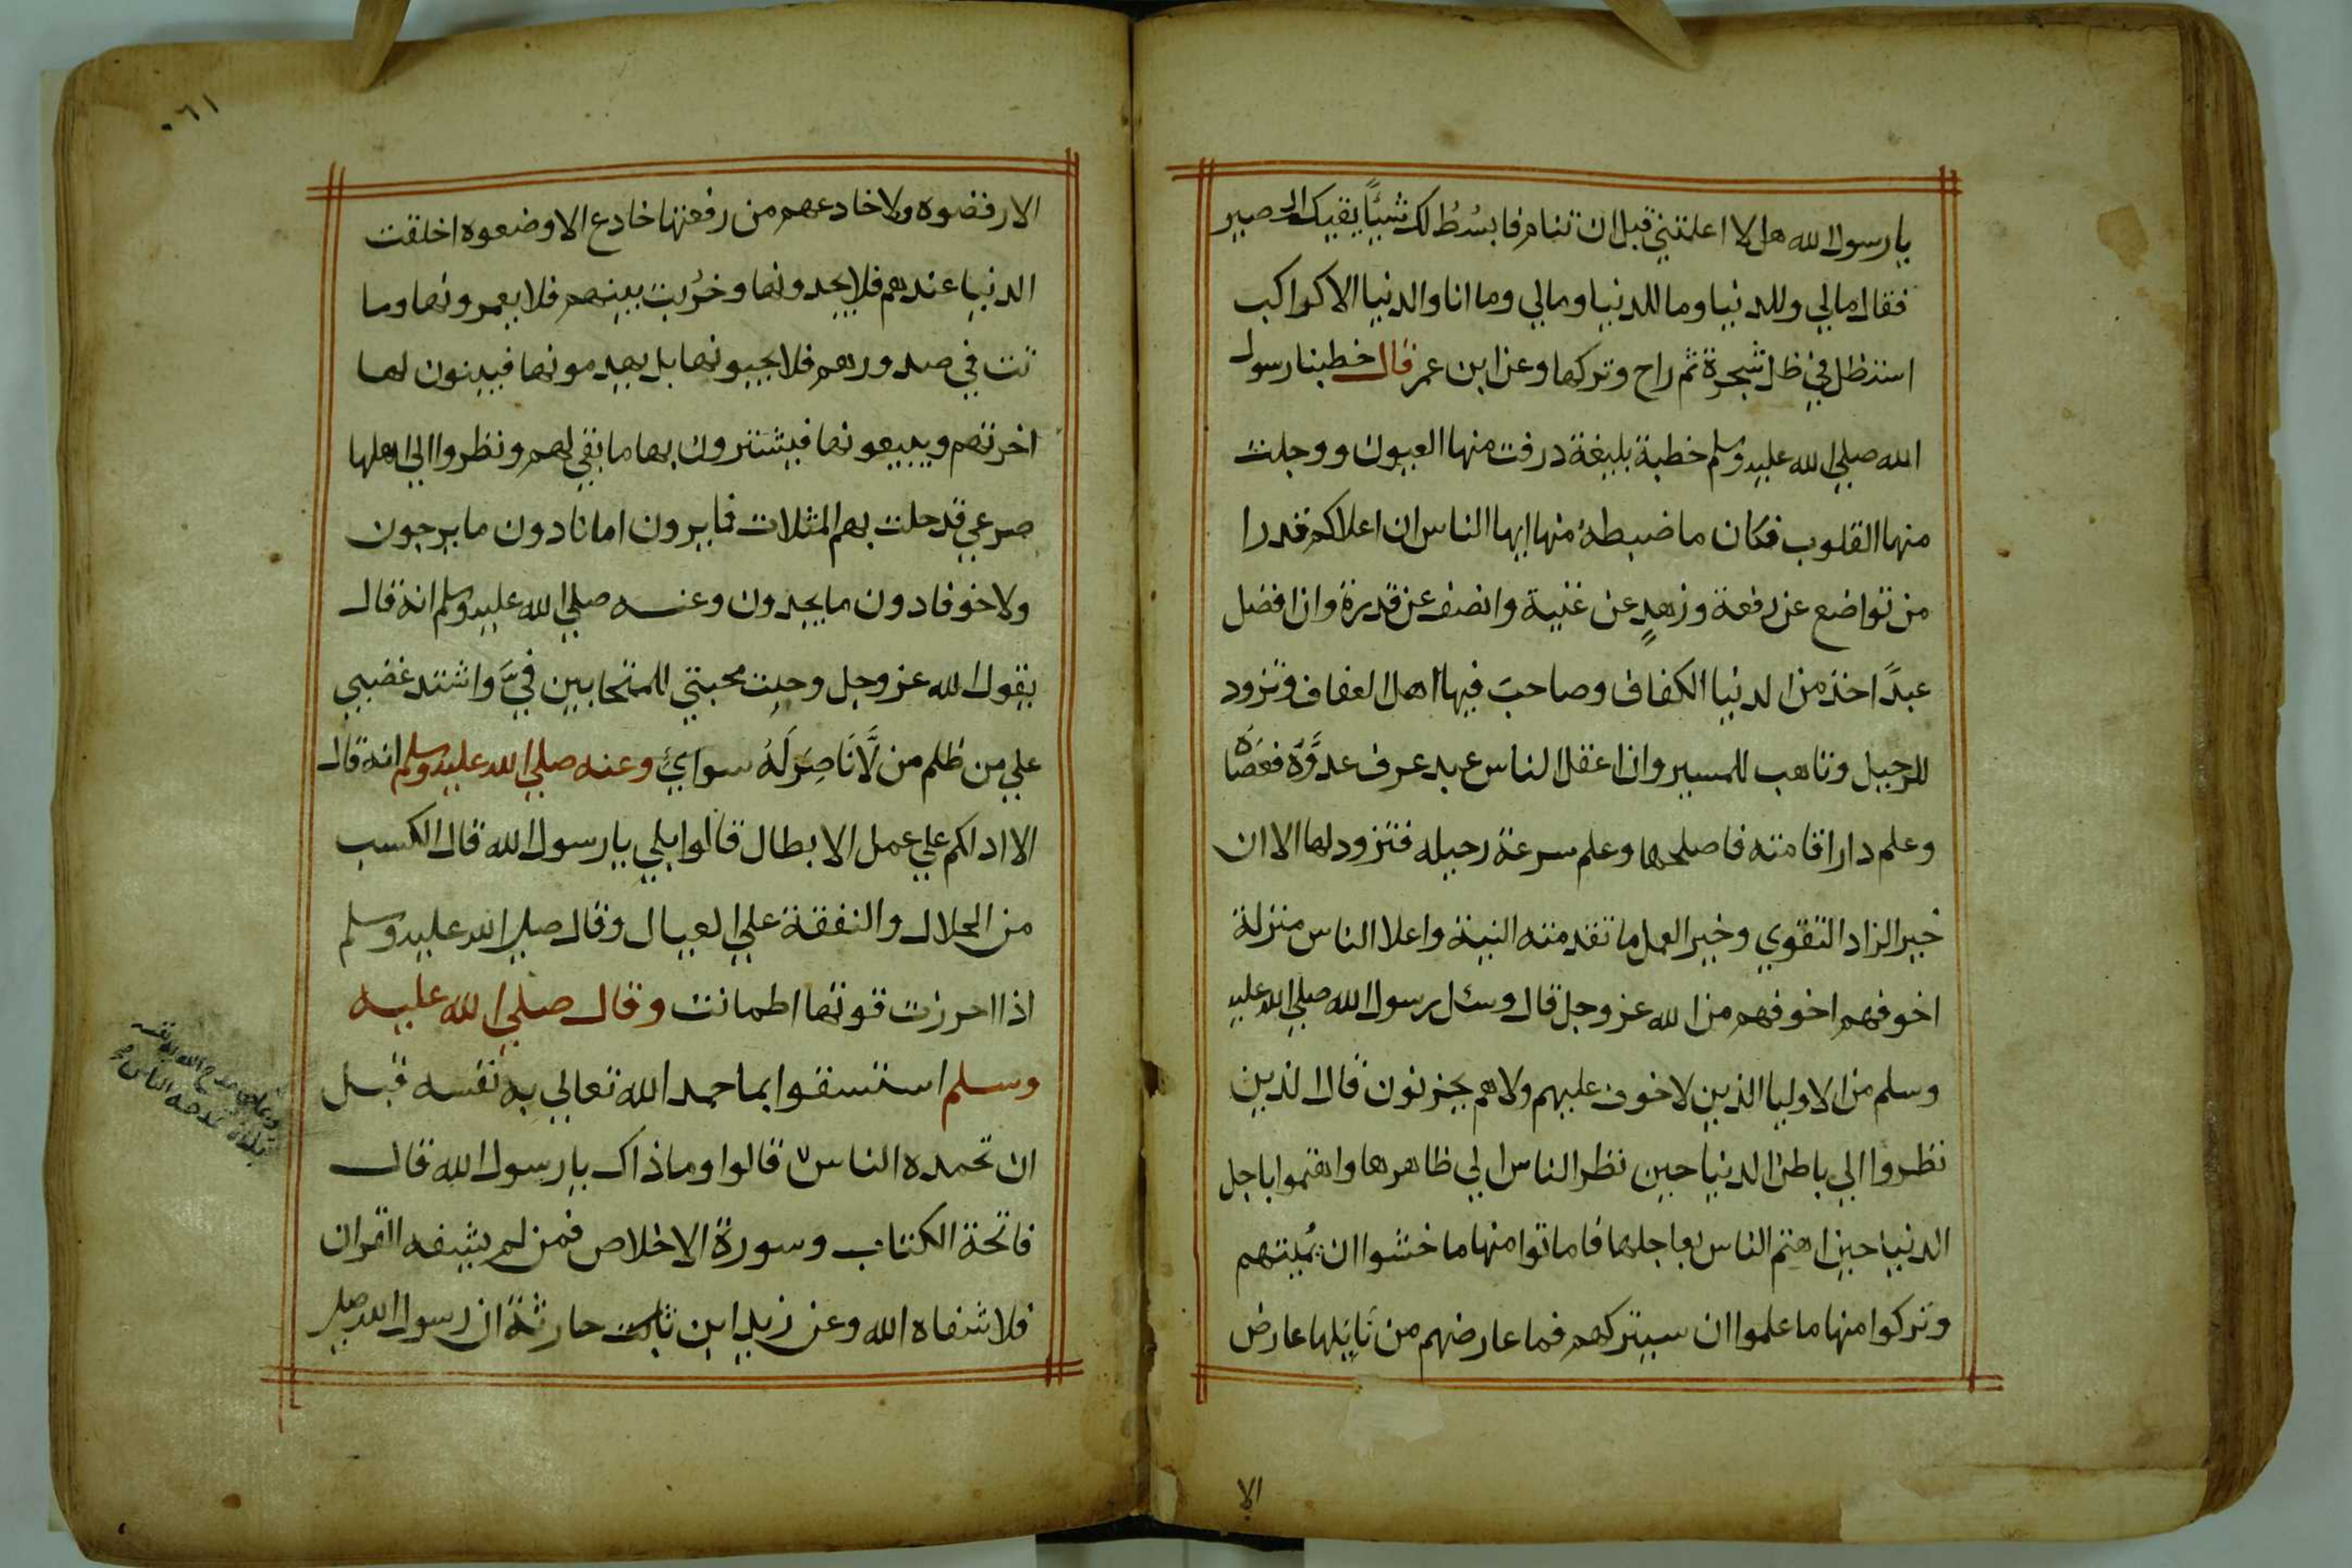 يا رسول الله هل لا اعلمتني قبل ان تنام فابسُطُ لك شيئًا يقيك الحصير
فقال مالي وللدنيا وما للدنيا ومالي وما انا والدنيا الا كراكب
استظل في ظل شجرة ثم راح وتركها وعن ابن عمر قال خطبنا رسول
الله صلي الله عليه وسلم خطبة بليغة درفت منها العيون ووجلت
منها القلوب فكان ما ضبطه منها ايها الناس ان اعلاكم قدرا
من تواضع عن رفعة وزهدٍ عن غنية وانصف عن قدرة وان افضل
عبدًا اخذ من الدنيا الكفاف وصاحبَ فيها اهل العفاف وتزود
للرحيل وتاهب للمسير وان اعقل الناس عبد عرف عدوَّهُ فعصَاهُ
وعلم دار اقامته فاصلحها وعلم سرعة رحيله فتزود لها الا ان
خير الزاد التقوي وخير العمل ما تقدمته النية واعلا الناس منزلة
اخوفهم اخوفهم من الله عز وجل قال وسئل رسول الله صلي الله عليه
وسلم من الاوليا الذين لا خوف عليهم ولا هم يحزنون قال الذين
نظروا الي باطن الدنيا حين نظر الناس الي ظاهرها واهتموا باجل
الدنيا حين اهتم الناس بعاجلها فاماتوا منها ما خشوا ان يُميتهم
وتركوا منها ما علموا ان سيتركهم فما عارضهم من نَايلها عارض
الا
٠٦١
الا رفضوه ولا خادعهم من رفعتها خادع الا وضعوه اخلقت
الدنيا عندهم فلا يجدونها وخرُبت بينهم فلا يعمرونها وما
تت في صدورهم فلا يحيونها بل يهدمونها فيبنون لها
اخرتهم ويبيعونها فيشترون بها ما بقي لهم ونظروا الي اهلها
صرعي قد حلت بهم المثلات فا يرون امانا دون ما يرجون
ولا خوفا دون ما يجدون وعنه صلي الله عليه وسلم انه قال
يقول الله عز وجل وجبت محبتي للمتحابين فيَّ واشتد غضبي
علي من ظلم من لَّا نَاصِرَ لَهُ سوايَ وعنه صلي الله عليه وسلم انه قال
الا ادلكم علي عمل الابطال قالوا بلي يا رسول الله قال الكسب
من الحلال والنفقة علي العيال وقال صلي الله عليه وسلم
اذا احرزت قوتها اطمانت وقال صلي الله عليه
وسلم استسقوا بما حمد الله تعالي به نفسه قبل
ان تحمده الناس قالوا وما ذاك يا رسول الله قال
فاتحة الكتاب وسورة الاخلاص فمن لم يشيفه القران
فلا شفاه الله وعن زيد ابن ثابت حارثة ان رسول الله صلي
مدح الله به نفسه
الناس